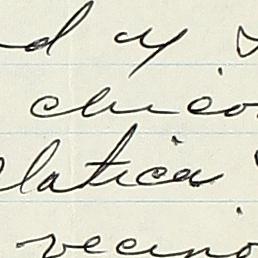 d y
chico
latica
vecino